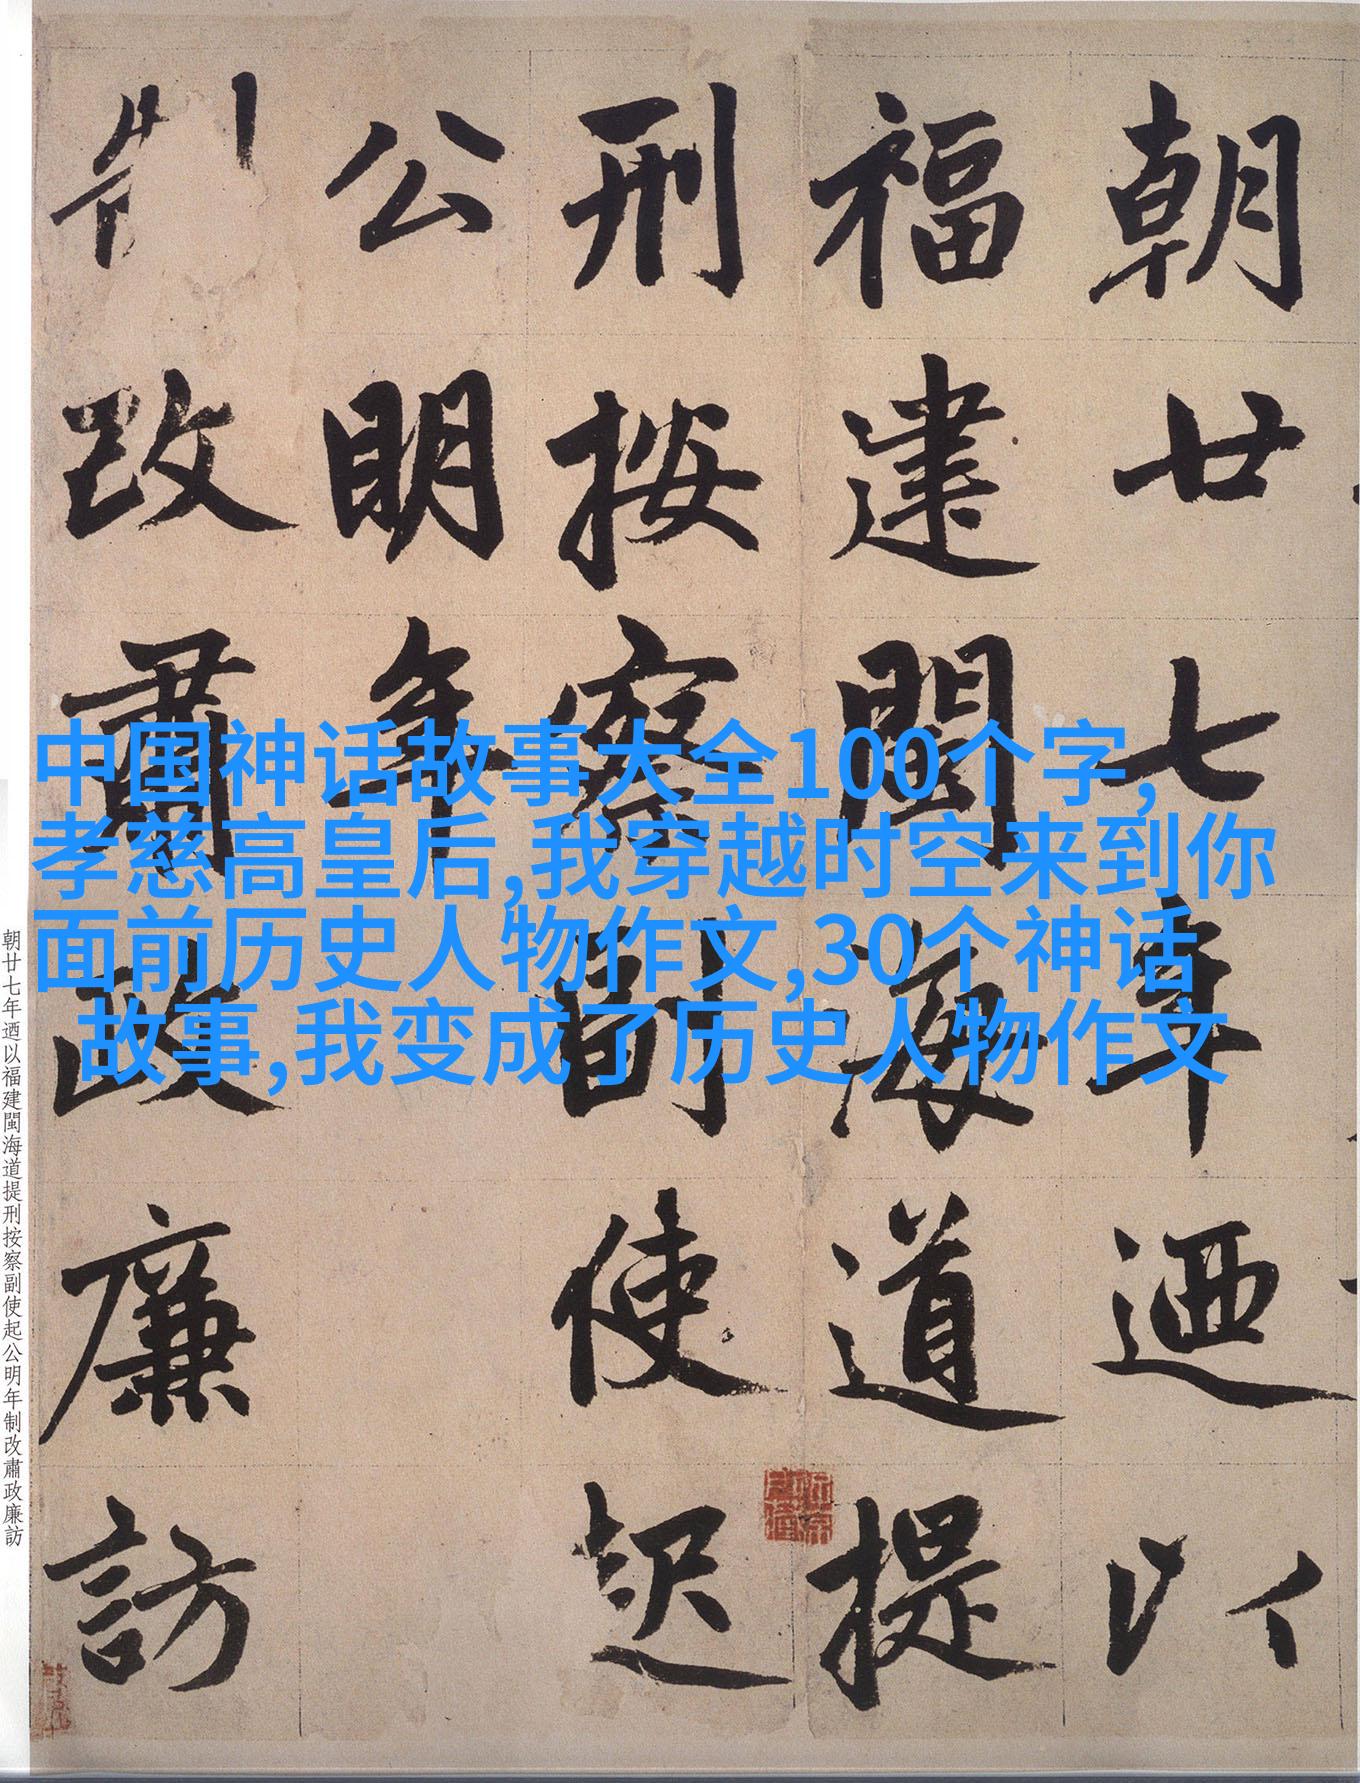 朝廿七年迺以
福建閩海道提
刑按察副使起
公明年
制改肅政廉訪
中国神话故事大全100个字,
孝慈高皇后,我穿越时空来到你
面前历史人物作文,30个神话
故事,我变成了历史人物作文
朝廿七年迺以福建閩海道提刑按察副使起公明年制改肅政廉訪